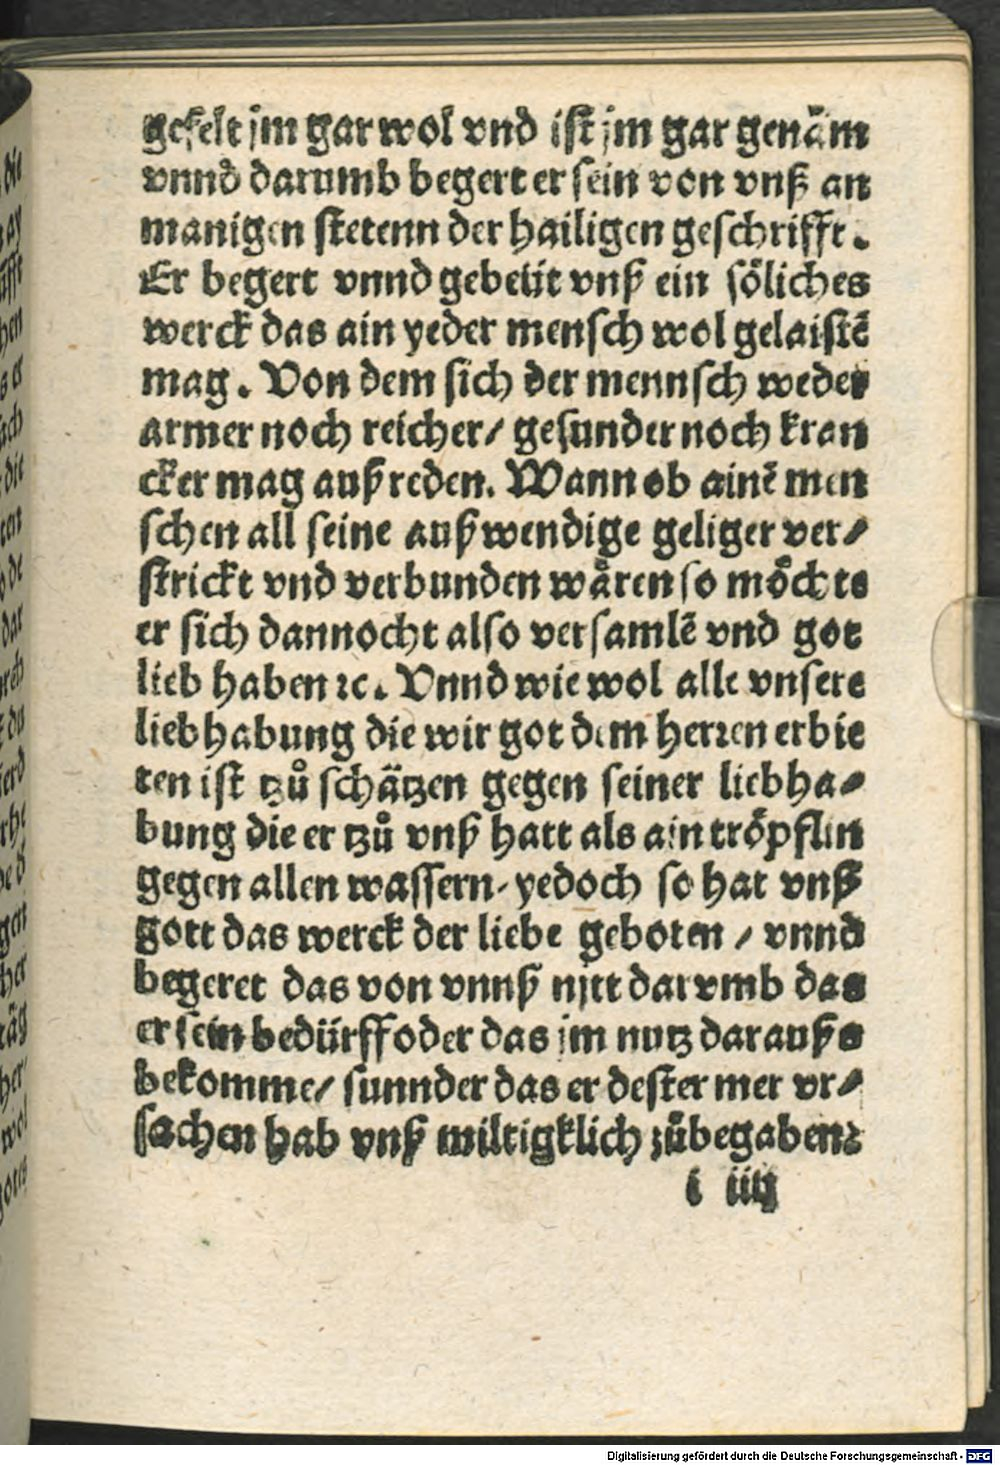 gefelt jm gar wol vnd ist jm gar genäm
vnnd darumb begert er sein von vnß an
manigen stetenn der hailigen geschrifft.
Er begert vnnd gebeüt vnß ein söliches
werck das ain yeder mensch wol gelaistē
mag. Von dem sich der mennsch weder
armer noch reicher/ gesunder noch kran
cker mag außreden. Wann ob ainē men
schen all seine außwendige geliger ver/
strickt vnd verbunden wåren so möchte
er sich dannocht also versamlē vnd got
lieb haben ꝛc. Vnnd wie wol alle vnsere
liebhabung die wir got dem herꝛen erbie
ten ist tzů schätzen gegen seiner liebha/
bung die er tzů vnß hatt als ain tröpflin
gegen allen wassern/ yedoch so hat vnß
gott das werck der liebe geboten / vnnd
begeret das von vnnß nitt darvmb das
er sein bedürff oder das jm nutz darauße
bekomme/ sunnder das er dester mer vr/
sachen hab vnß miltigklich zůbegaben:
i iiij
Digitalisierung gefördert durch die Deutsche Forschungsgemeinschaft - DFG